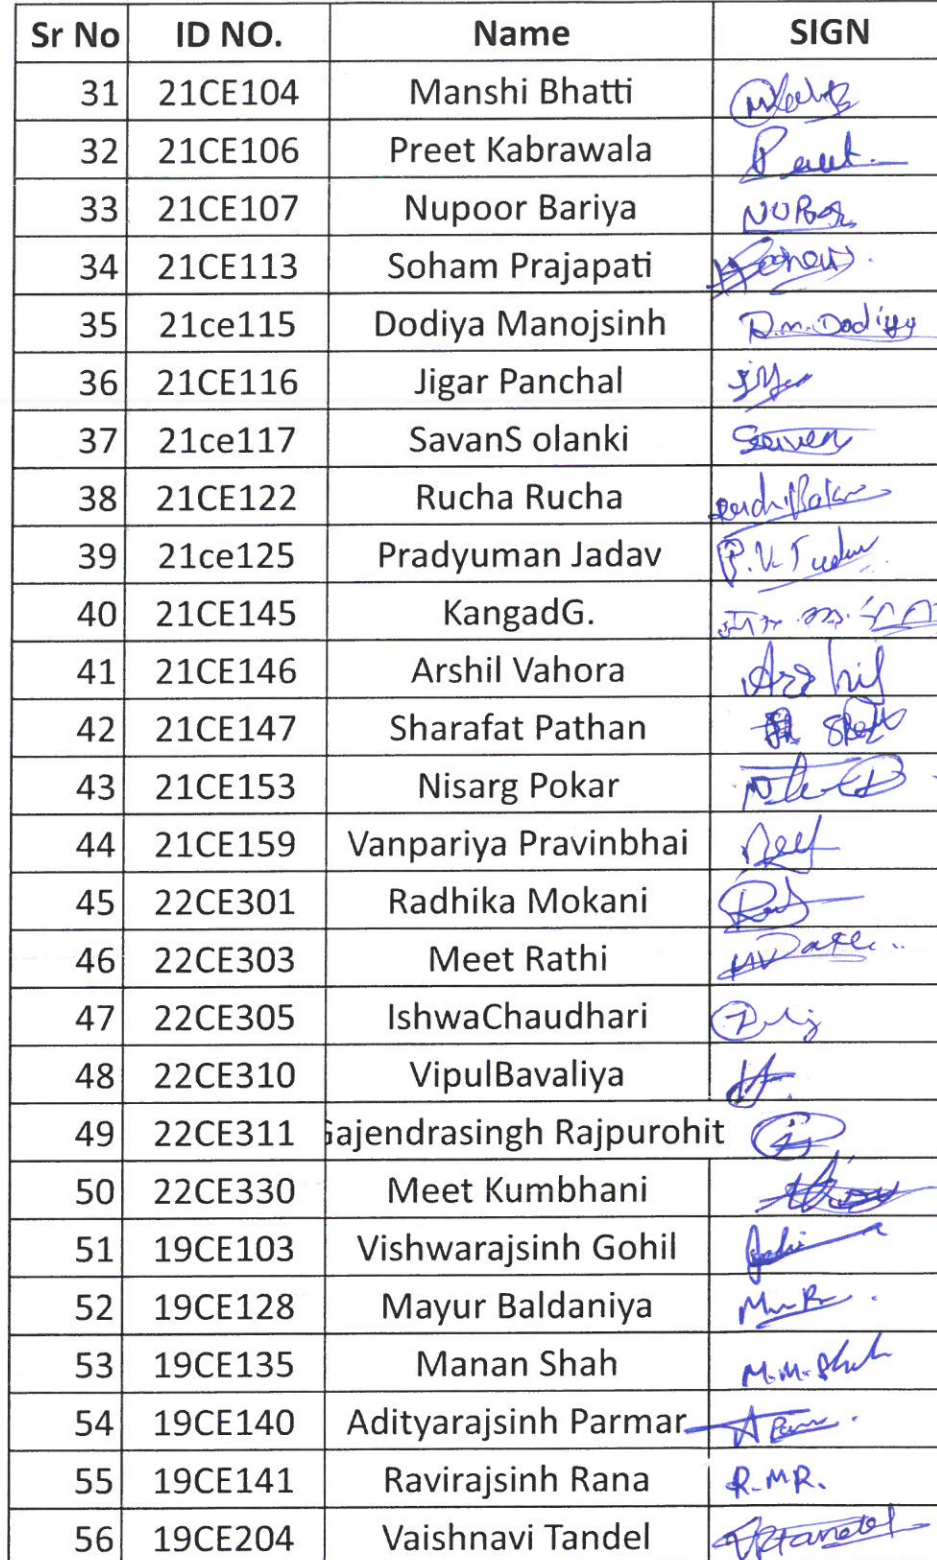 Sr No ID NO. Name SIGN
31 21CE104 Manshi Bhatti
32 21CE106 Preet Kabrawala Preet.
33 21CE107 Nupoor Bariya
34 21CE113 Soham Prajapati
35 21ce115 Dodiya Manojsinh D.m.Dodiya
36 21CE116 Jigar Panchal
37 21ce117 SavanS olanki
38 21CE122 Rucha Rucha
39 21ce125 Pradyuman Jadav
40 21CE145 KangadG.
41 21CE146 Arshil Vahora Arshil
42 21CE147 Sharafat Pathan
43 21CE153 Nisarg Pokar
44 21CE159 Vanpariya Pravinbhai
45 22CE301 Radhika Mokani
46 22CE303 Meet Rathi
47 22CE305 IshwaChaudhari
48 22CE310 VipulBavaliya
49 22CE311 Gajendrasingh Rajpurohit
50 22CE330 Meet Kumbhani
51 19CE103 Vishwarajsinh Gohil
52 19CE128 Mayur Baldaniya
53 19CE135 Manan Shah M.M.Shah
54 19CE140 Adityarajsinh Parmar
55 19CE141 Ravirajsinh Rana R.MR.
56 19CE204 Vaishnavi Tandel